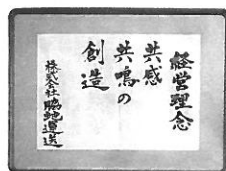 経営理念
共感
共鳴の
創造
株式会社脇地運送